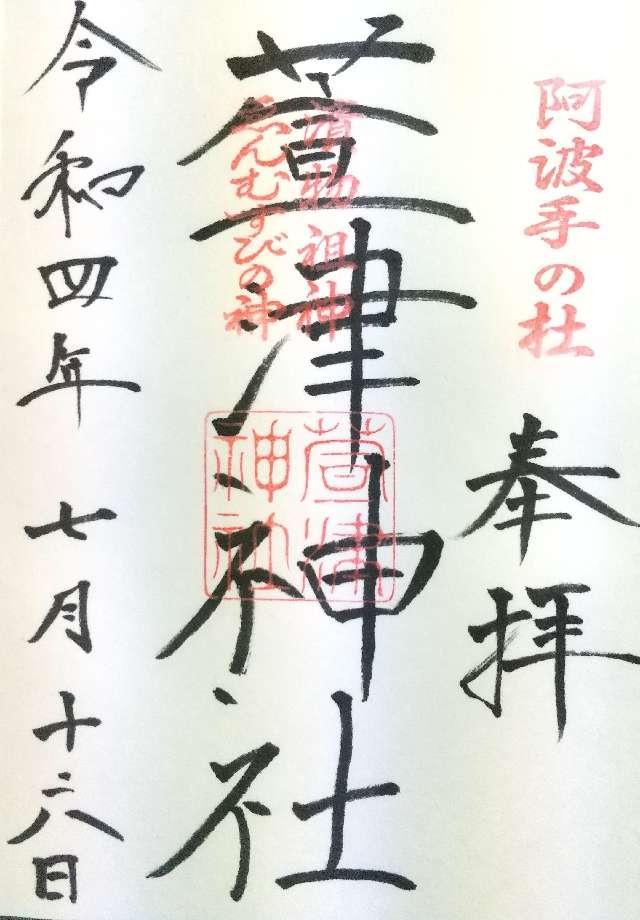 阿波手の杜
奉拝
漬物祖神
えんむすびの神
萱津神社
萱津神社
令和四年七月十六日